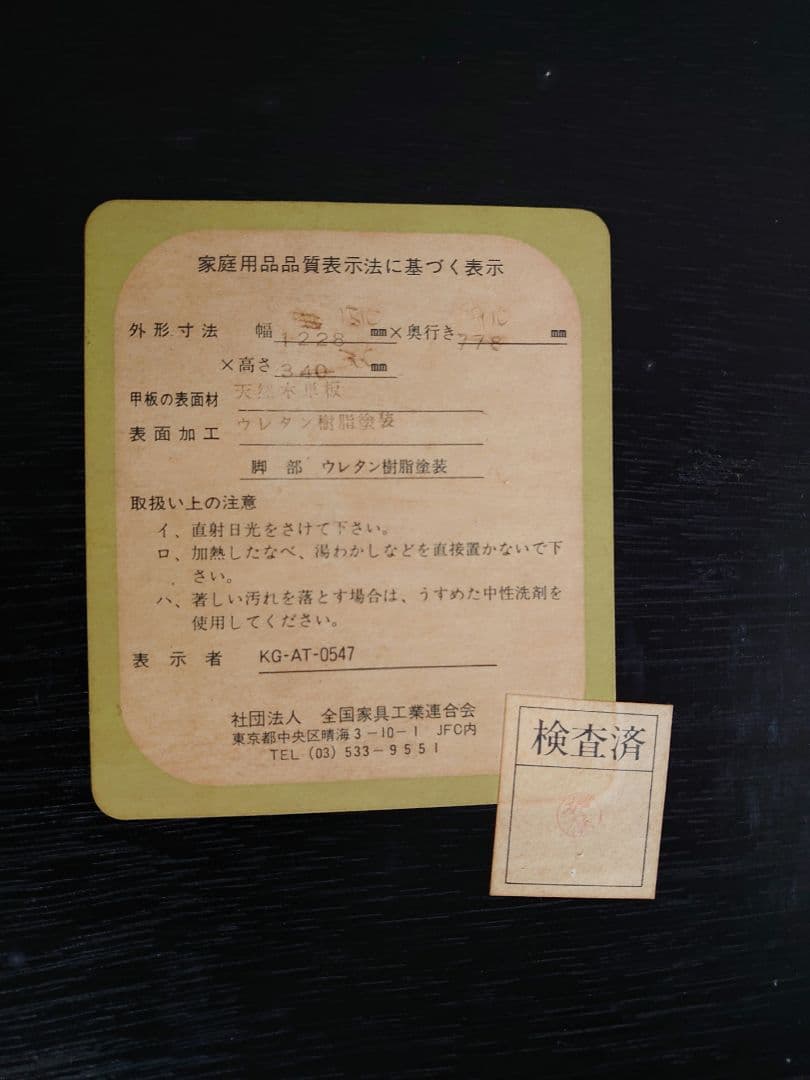 家庭用品品質表示法に基づく表示
外形寸法 幅 1228 mm×奥行き 778 mm
×高さ 340 mm
甲板の表面材 天然木単板
表面加工 ウレタン樹脂塗装
脚部 ウレタン樹脂塗装
取扱い上の注意
イ、直射日光をさけて下さい。
ロ、加熱したなべ、湯わかしなどを直接置かないで下
さい。
ハ、著しい汚れを落とす場合は、うすめた中性洗剤を
使用してください。
表示者 KG-AT-0547
社団法人 全国家具工業連合会
東京都中央区晴海3-10-1 JFC内
TEL (03) 533-9551
検査済